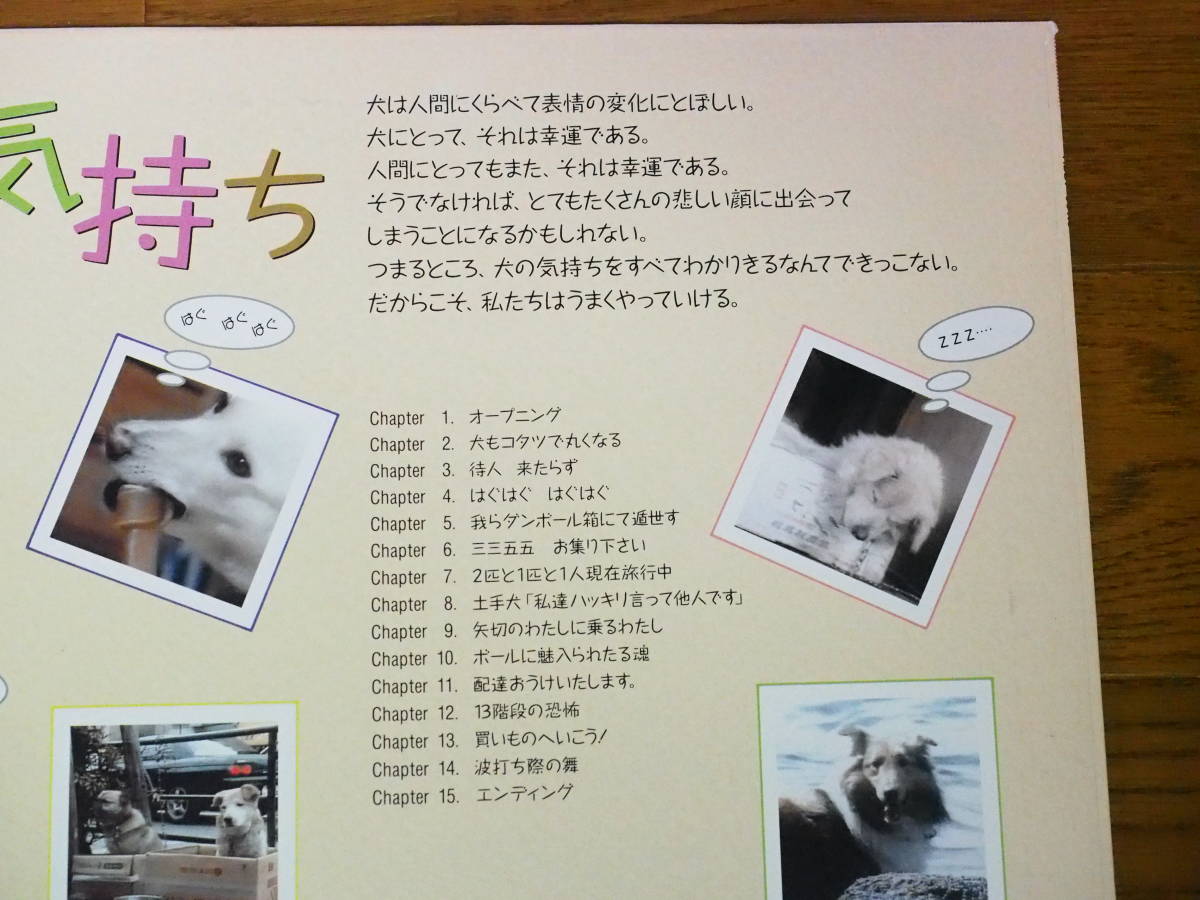 気持ち
犬は人間にくらべて表情の変化にとぼしい。
犬にとって、それは幸運である。
人間にとってもまた、それは幸運である。
そうでなければ、とてもたくさんの悲しい顔に出会って
しまうことになるかもしれない。
つまるところ、犬の気持ちをすべてわかりきるなんてできっこない。
だからこそ、私たちはうまくやっていける。
はぐ はぐ はぐ
ZZZ‥‥
Chapter 1. オープニング
Chapter 2. 犬もコタツで丸くなる
Chapter 3. 待人 来たらず
Chapter 4. はぐはぐ はぐはぐ
Chapter 5. 我らダンボール箱にて遁世す
Chapter 6. 三三五五 お集り下さい
Chapter 7. 2匹と1匹と1人現在旅行中
Chapter 8. 土手犬「私達ハッキリ言って他人です」
Chapter 9. 矢切のわたしに乗るわたし
Chapter 10. ボールに魅入られたる魂
Chapter 11. 配達おうけいたします。
Chapter 12. 13階段の恐怖
Chapter 13. 買いものへいこう!
Chapter 14. 波打ち際の舞
Chapter 15. エンディング